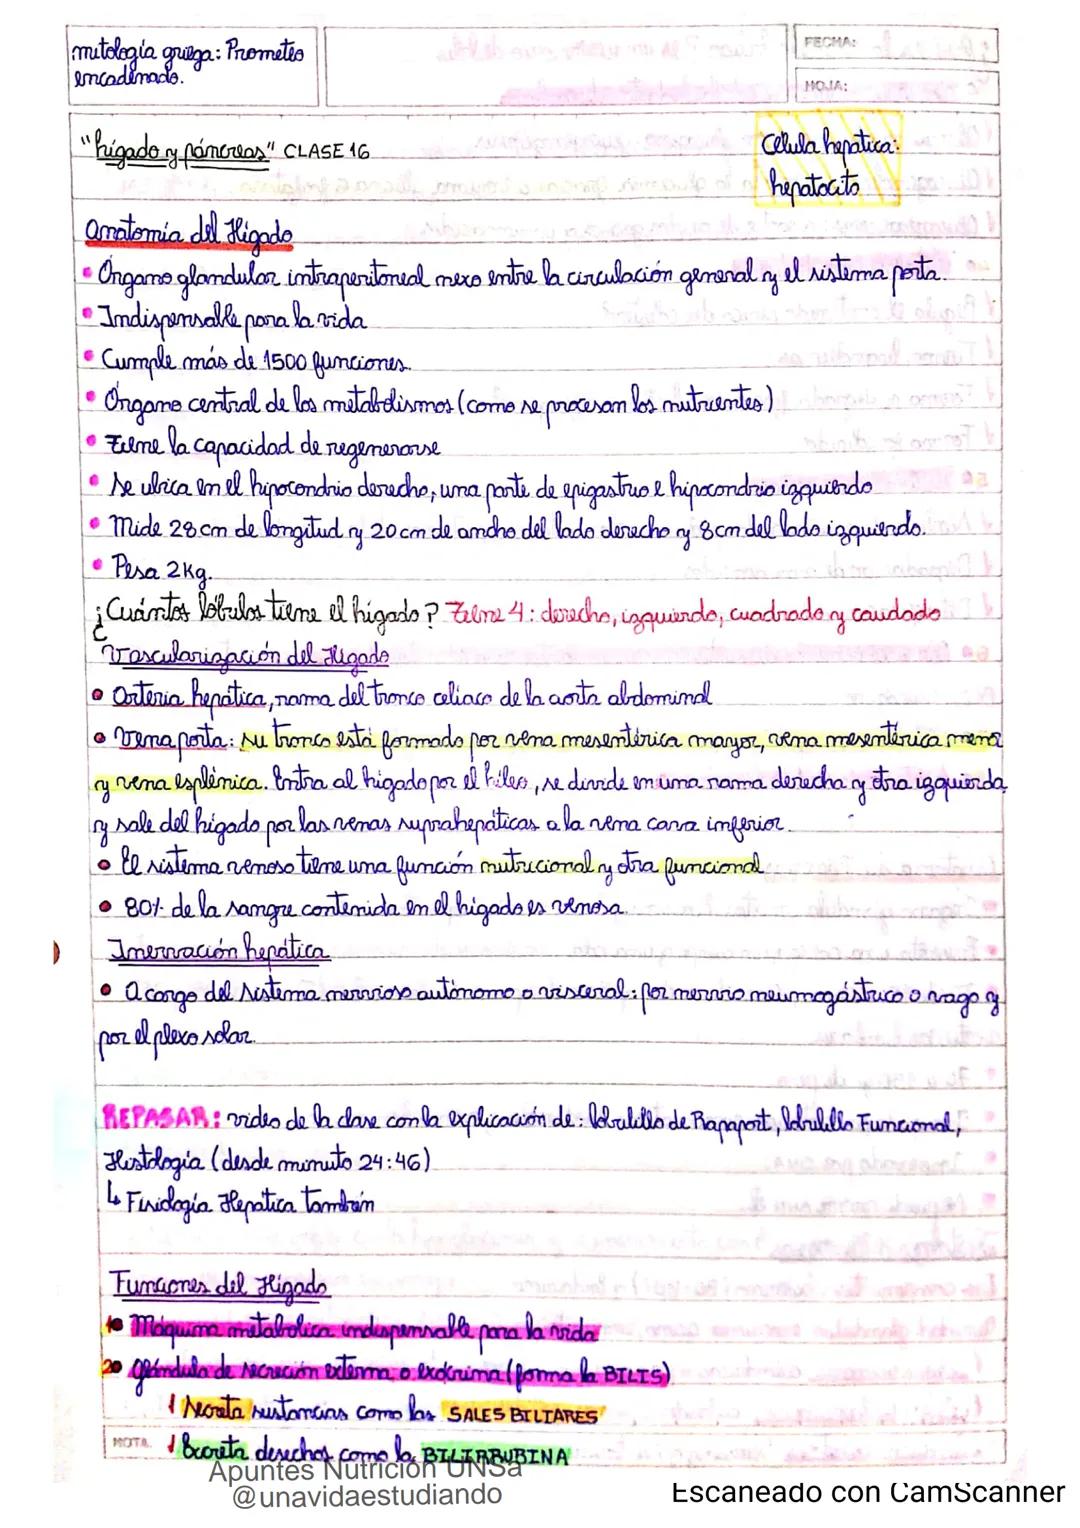 mitología griega: Prometeo
encadenado.
FECHA:
HOJA:
"hígado y páncreas" CLASE 16
Célula hepatica:
hepatocito
Anatomía del Hígado
• Órgano glandular intraperitoneal nexo entre la circulación general y el sistema porta.
• Indispensable para la vida
• Cumple más de 1500 funciones.
• Órgano central de los metabolismos (como se procesan los nutrientes)
• Tiene la capacidad de regenerarse
• Se ubica en el hipocondrio derecho, una parte de epigastrio e hipocondrio izquierdo
• Mide 28 cm de longitud y 20 cm de ancho del lado derecho y 8 cm del lado izquierdo.
• Pesa 2 Kg.
¿Cuántos lóbulos tiene el hígado? Tiene 4: derecho, izquierdo, cuadrado y caudado
Vascularización del Hígado
• Arteria hepática, rama del tronco celiaco de la aorta abdominal
• Vena porta: su tronco está formado por vena mesentérica mayor, vena mesentérica menor
y vena esplénica. Entra al hígado por el hileo, se divide en una rama derecha y otra izquierda,
y sale del hígado por las venas suprahepáticas a la vena cava inferior.
• El sistema venoso tiene una función nutricional y otra funcional
• 80% de la sangre contenida en el hígado es venosa.
Inervación hepática
• A cargo del Sistema nervioso autónomo o visceral: por nervio neumogástrico o vago y
por el plexo solar.
REPASAR: video de la clase con la explicación de: lobulillo de Rapaport, lobulillo Funcional,
Histología (desde minuto 24:46)
↳ Fisiología Hepatica también
Funciones del Hígado
1• Máquina metabolica indispensable para la vida
2• glándula de secreción externa o exócrina (forma la BILIS)
Secreta sustancias como las SALES BILIARES
NOTA:
Excreta desechos como la BILIRRUBINA
Apuntes Nutrición UNSa
@unavidaestudiando
Escaneado con CamScanner